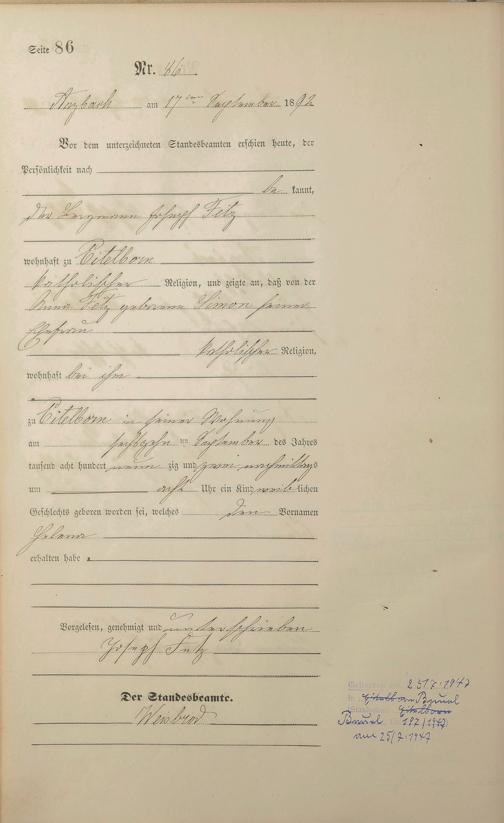 Seite 86
Nr. 86
Arzbach am 17ten September 1892
Vor dem unterzeichneten Standesbeamten erschien heute, der
Persönlichkeit nach
be kannt,
der Bergmann Joseph Fetz
wohnhaft zu Eitelborn
katholischer Religion, und zeigte an, daß von der
Anna Fetz geborene Simon seiner
Ehefrau
katholischer Religion,
wohnhaft bei ihm
zu Eitelborn in seiner Wohnung
am sechszehn ten September des Jahres
tausend acht hundert neun zig und zwei nachmittags
um acht Uhr ein Kind weib lichen
Geschlechts geboren worden sei, welches den Vornamen
Helena
erhalten habe
Vorgelesen, genehmigt und unterschrieben
Joseph Fetz
Der Standesbeamte.
Weisbrod
25/7.1947
Eitelborn
Eitelborn
197/1947
am 25/7.1947